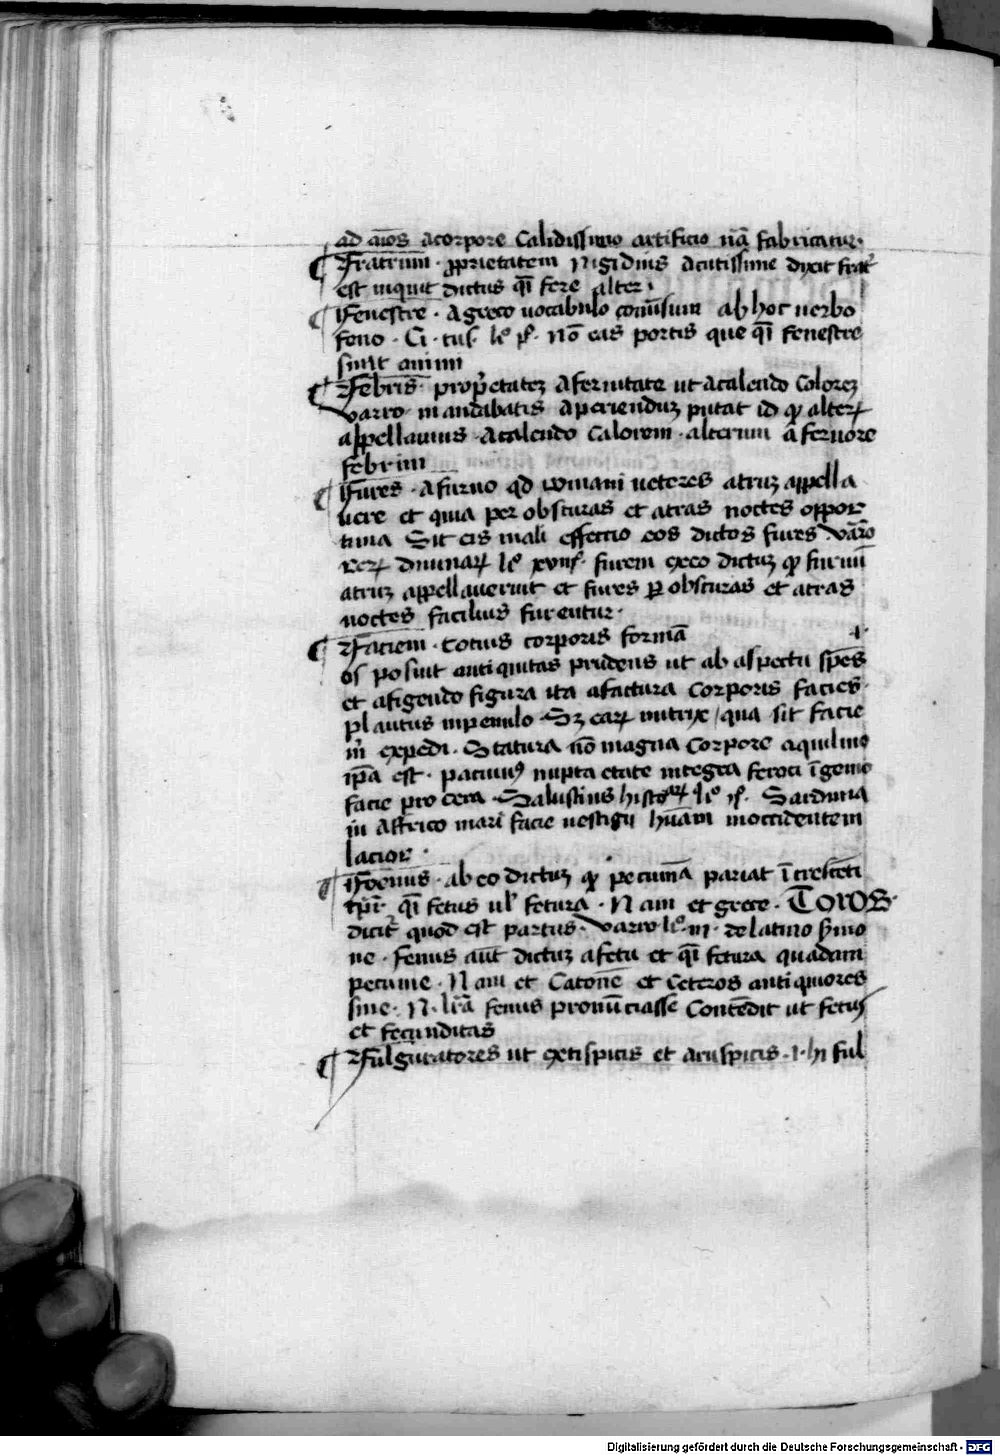 ad aīos acorpore Calidissimo artificio nā fabricatur·
¶ Fratrum · ꝓprietatem Nigidius Acutissime dixit frat᷑
est inquit dictus qī fere alter ·
¶ Fenestre · A greco uocabulo conūsum ab hoc uerbo
feno · Ci · tul · liᵒ · Nō eas portis que qī fenestre
sunt animi
¶ Febris · prop̄etatez A feruitate ut Acalendo Colorez
Varro in andabatis Aperienduz putat id qꝫ alterꝝ
appellamus · Acalendo Calorem · alterum a feruore
febrim
¶ Fures · A furuo qd romani ueteres atruz appella
uere et quia per obscuras et atras noctes oppor
tuna Sit eis mali effectio eos dictos fures Varro
rerꝝ diuinaꝝ liᵒ xiiij · furem exeo dictuz qꝫ furuū
atruz appellauerunt et fures ꝑ obscuras et atras
noctes facilius furentur ·
¶ Faciem · totius corporis formā
os posuit antiquitas prudens ut ab aspectu spēs
et afigendo figura ita afactura Corporis facies ·
plautus inpenulo · Sꝫ earꝝ nutrix qua sit facie
m̄ expedi · Statura nō magna Corpore aquilino
ip̄a est · pacuuiꝰ nupta etate integra feroci īgenio
facie procera · Salustius histoꝝ liᵒ ij · Sardinia
in Affrico mari facie uestigij hūani inoccidentem
lacior ·
¶ Foenus · ab eo dictuz qꝫ pecuniā pariat īcrescēti
tp̄r · qī fetus ul fetura · Nam et grece · TOKOS ·
dicit᷑ quod est partus · Varro liᵒ · iij · de latino s̄mo
ne · fenus aūt dictuz afetu et qī fetura quadam
pecunie · Nam et Catonē et Ceteros antiquiores
sine · A · lr̄a fenus pronūciasse Contēdit ut fetus
et fecunditas
¶ Fulguratores ut extispicis et Aruspicis · i · hi ful
Digitalisierung gefördert durch die Deutsche Forschungsgemeinschaft - DFG